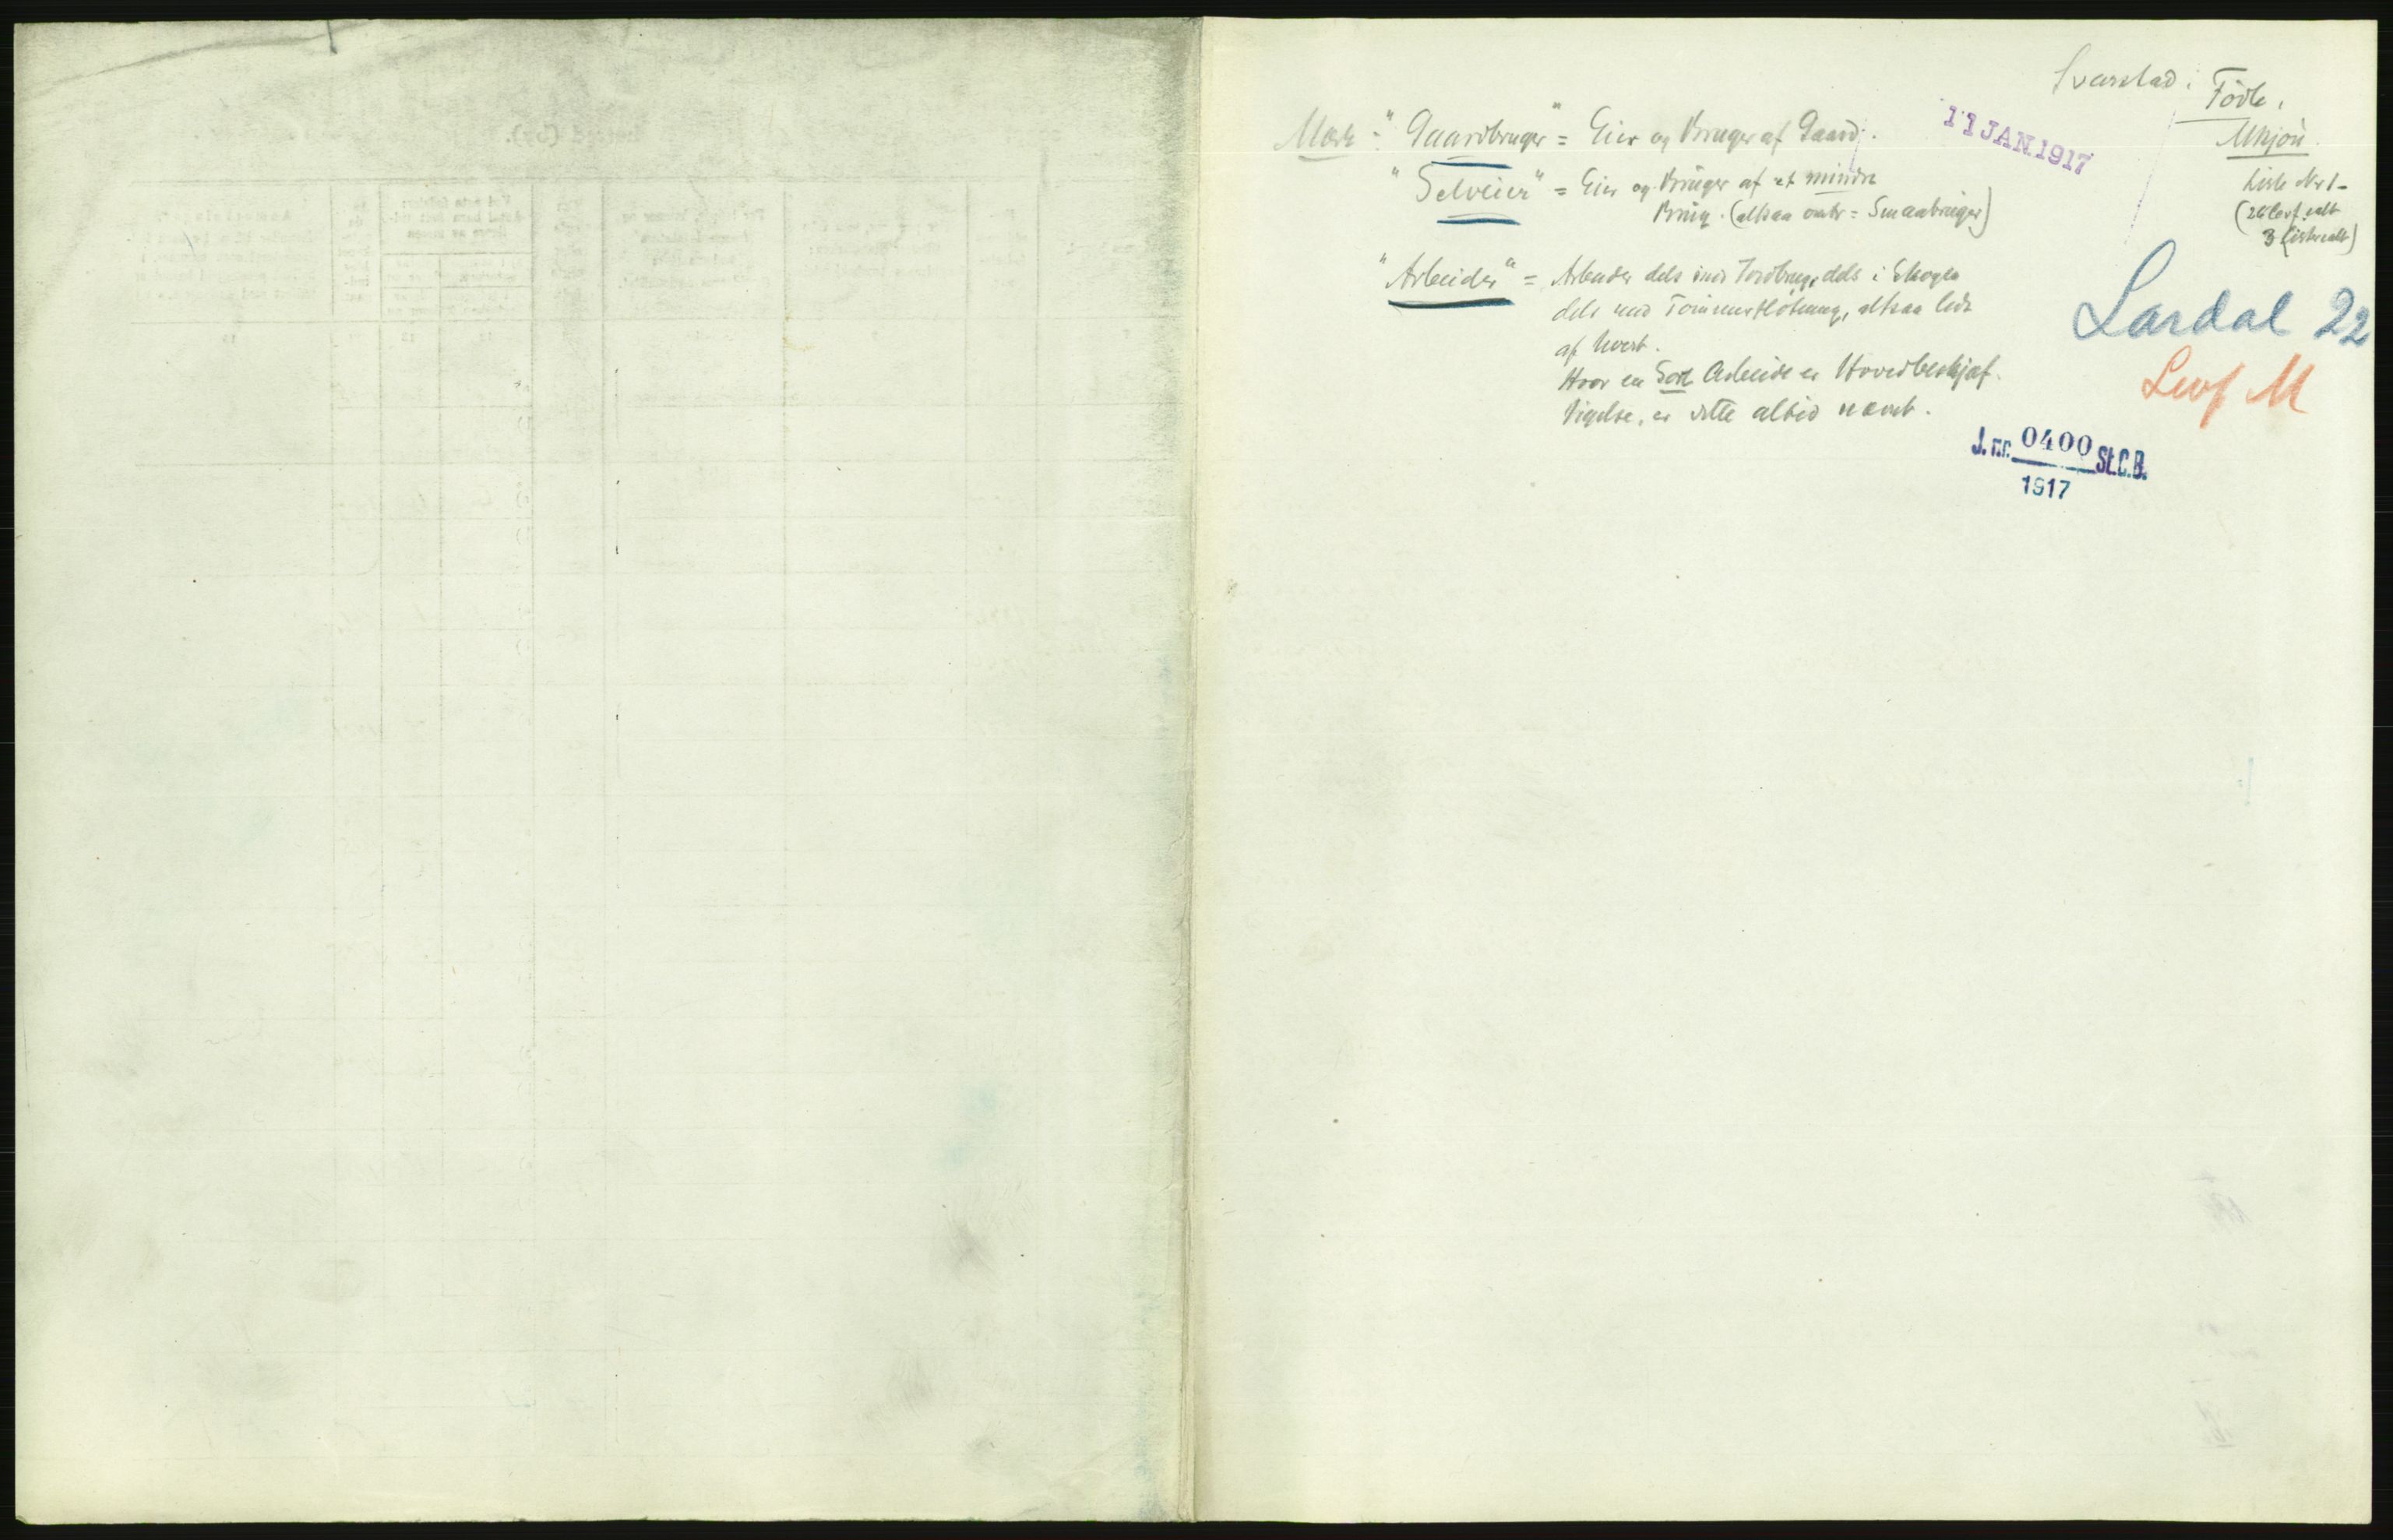 Svarstad.
Födte,
Mkjön.
Liste Nr 1-
3 Lister ialt)
11 JAN 1917
Mærk: "Gaardbruger" = Eier og Bruger af Gaard.
"Selveier" = Eier og Bruger af et mindre
Brug. (altsaa omtr = Smaabruger)
"Arbeider" = Arbeider dels ved Jordbrug, dels i Skogen
dels ved Tømmerfløtning, altsaa lidt
af hvert.
Hvor en Sort Arbeide er Hovedbeskjæf-
tigelse, er dette altid nævnt.
Lardal 22
Lev f M
J. nr. 0400 St.C.B.
1917